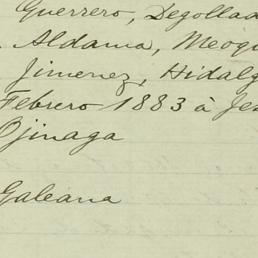 Guerrero, Degollad
Aldama, Meoqui
Jimenez, Hidalg
Febrero 1883 à Je
Ojinaga
Galeana